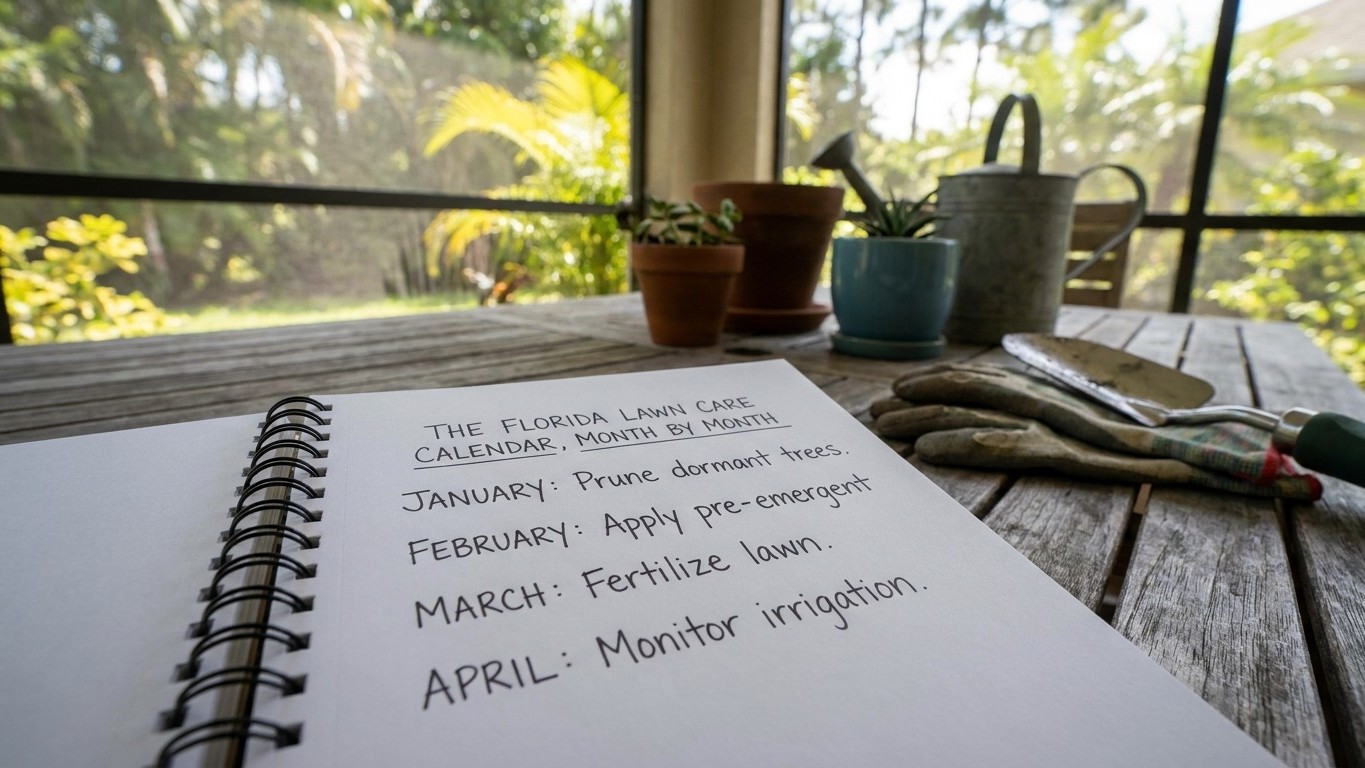 THE FLORIDA LAWN CARE
CALENDAR, MONTH BY MONTH
JANUARY: Prune dormant trees.
FEBRUARY: Apply pre-emergent
MARCH: Fertilize lawn.
APRIL: Monitor irrigation.